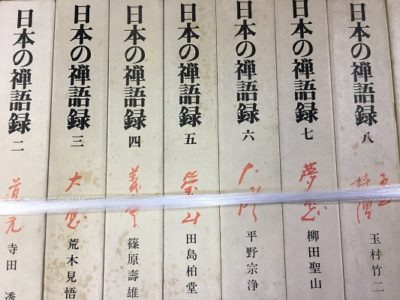 日本の禅語録 二
道元
寺田 透
日本の禅語録 三
大応
荒木見悟
日本の禅語録 四
義雲
篠原壽雄
日本の禅語録 五
瑩山
田島柏堂
日本の禅語録 六
平野宗浄
日本の禅語録 七
夢窓
柳田聖山
日本の禅語録 八
玉村竹二